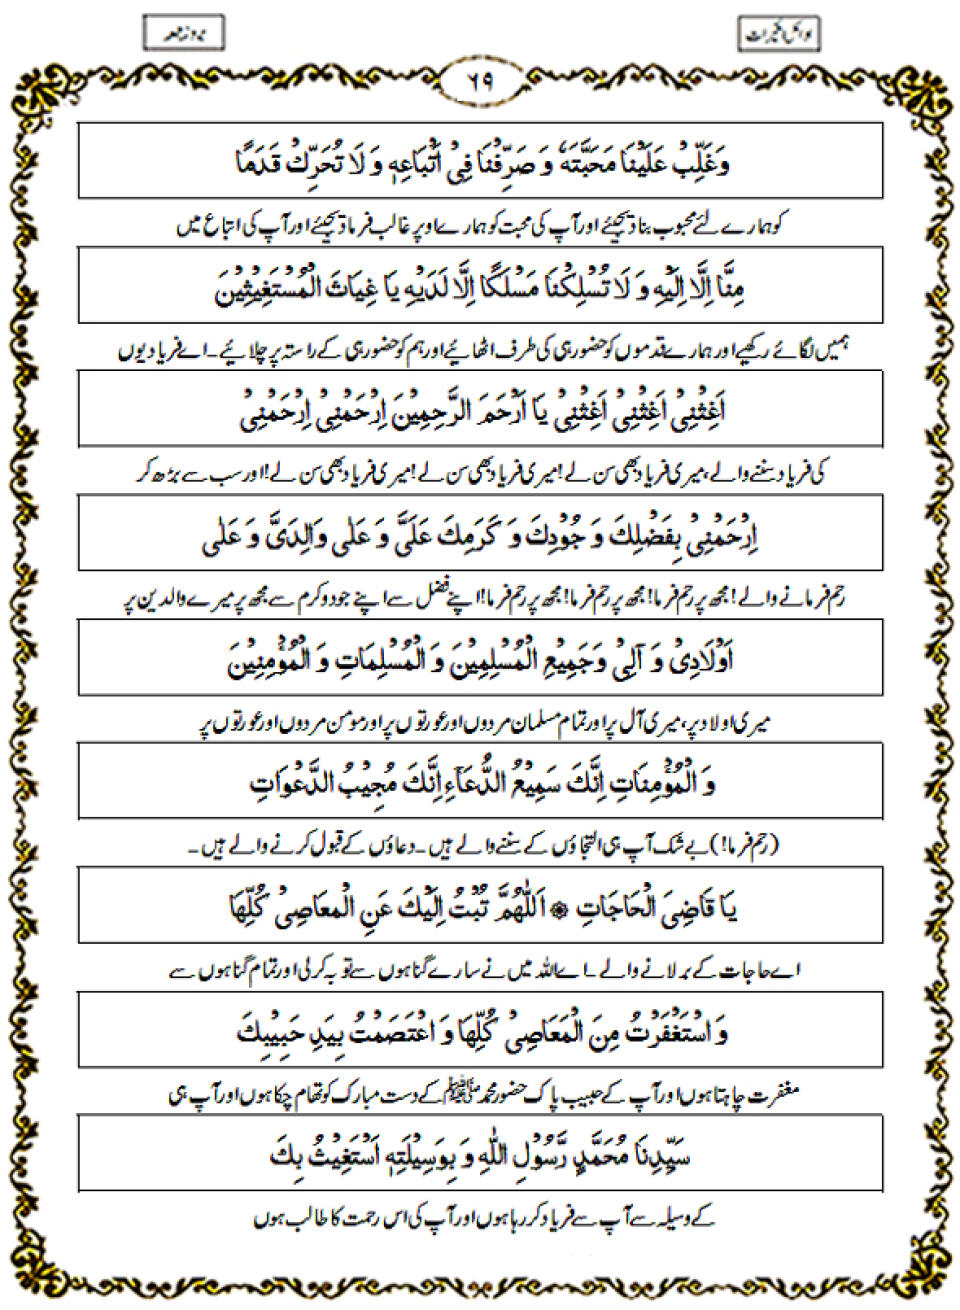 ۶۹
وَغَلِّبْ عَلَيْنَا مَحَبَّتَهٗ وَ صَرِّفْنَا فِيْ اَتْبَاعِهٖ وَ لَا تُحَرِّكْ قَدَمًا
کو ہمارے لئے محبوب بنا دیجئے اور آپ کی محبت کو ہمارے اوپر غالب فرما دیجئے اور آپ کی اتباع میں
مِنَّا اِلَّا اِلَيْهِ وَ لَا تُسْلِكْنَا مَسْلَكًا اِلَّا لَدَيْهِ يَا غِيَاثَ الْمُسْتَغِيْثِيْنَ
ہمیں لگائے رکھیے اور ہمارے قدموں کو حضور ہی کی طرف اٹھائیے اور ہم کو حضور ہی کے راستہ پر چلائیے۔ اے فریادیوں
اَغِثْنِيْ اَغِثْنِيْ اَغِثْنِيْ يَا اَرْحَمَ الرَّحِمِيْنَ اِرْحَمْنِيْ اِرْحَمْنِيْ
کی فریاد سننے والے، میری فریاد بھی سن لے! میری فریاد بھی سن لے! میری فریاد بھی سن لے! اور سب سے بڑھ کر
اِرْحَمْنِيْ بِفَضْلِكَ وَ جُوْدِكَ وَ كَرَمِكَ عَلَىَّ وَ عَلٰى وَالِدَىَّ وَ عَلٰى
رحم فرمانے والے! مجھ پر رحم فرما! مجھ پر رحم فرما! مجھ پر رحم فرما! اپنے فضل سے اپنے جود و کرم سے مجھ پر میرے والدین پر
اَوْلَادِىْ وَ آلِيْ وَجَمِيْعِ الْمُسْلِمِيْنَ وَ الْمُسْلِمَاتِ وَ الْمُؤْمِنِيْنَ
میری اولاد پر، میری آل پر اور تمام مسلمان مردوں اور عورتوں پر اور مومن مردوں اور عورتوں پر
وَ الْمُؤْمِنَاتِ اِنَّكَ سَمِيْعُ الدُّعَآءِ اِنَّكَ مُجِيْبُ الدَّعْوَاتِ
(رحم فرما!) بے شک آپ ہی التجاؤں کے سننے والے ہیں۔ دعاؤں کے قبول کرنے والے ہیں۔
يَا قَاضِىَ الْحَاجَاتِ ۞ اَللّٰهُمَّ تُبْتُ اِلَيْكَ عَنِ الْمعَاصِىْ كُلِّهَا
اے حاجات کے بر لانے والے۔ اے اللہ میں نے سارے گناہوں سے توبہ کر لی اور تمام گناہوں سے
وَ اسْتَغْفَرْتُ مِنَ الْمَعَاصِىْ كُلِّهَا وَ اعْتَصَمْتُ بِيَدِ حَبِيْبِكَ
مغفرت چاہتا ہوں اور آپ کے حبیب پاک حضور محمد ﷺ کے دست مبارک کو تھام چکا ہوں اور آپ ہی
سَيِّدِنَا مُحَمَّدٍ رَّسُوْلِ اللّٰهِ وَ بِوَسِيْلَتِهٖ اَسْتَغِيْثُ بِكَ
کے وسیلہ سے آپ سے فریاد کر رہا ہوں اور آپ کی اس رحمت کا طالب ہوں